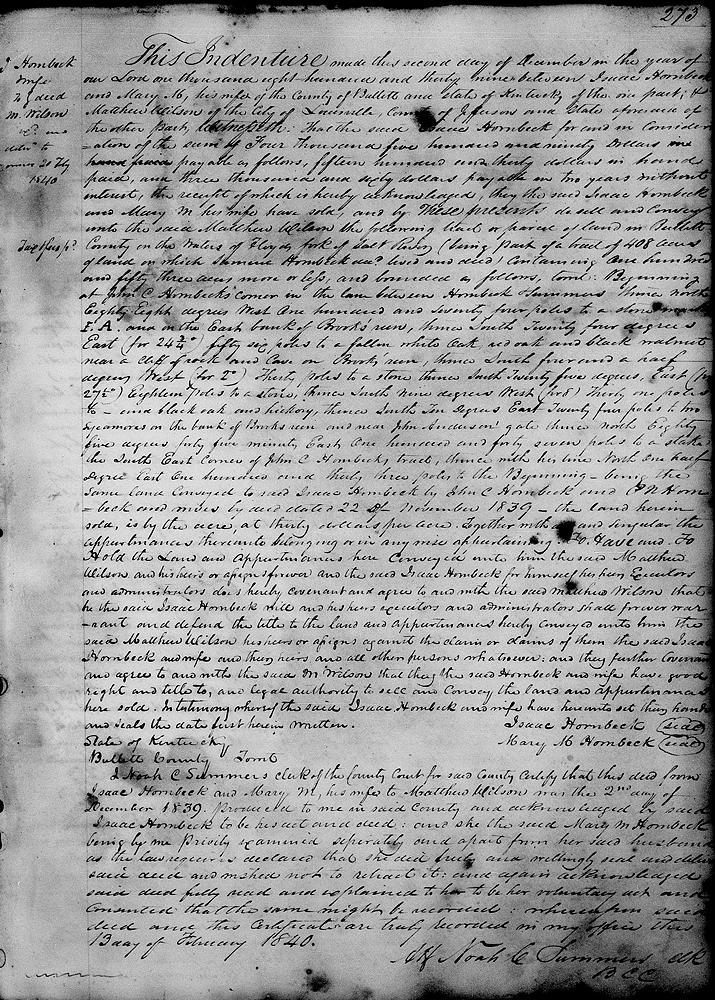 273
Hornbeck
wife
To } deed
M. Wilson
1840
This Indenture made this second day of December in the year of
our Lord one thousand eight hundred and thirty nine between Isaac Hornbeck
and Mary M, his wife of the County of Bullitt and state of Kentucky of the one part; &
Matthew Wilson of the City of Louisville, County of Jefferson and State aforesaid of
the other part, Witnesseth: That the said Isaac Hornbeck for and in Consider
-ation of the sum of Four thousand five hundred and ninety Dollars in
hand paid payable as follows, fifteen hundred and thirty dollars in hand
paid, and three thousand and sixty dollars payable in two years without
interest, the receipt of which is hereby acknowledged, they the said Isaac Hornbeck
and Mary M his wife have sold, and by These presents do sell and Convey
unto the said Matthew Wilson the following tract or parcel of land in Bullitt
County on the Waters of Floyds fork of Salt River (being Part of a tract of 408 acres
of land on which Samuel Hornbeck decd lived and died) Containing One hundred
and fifty three acres more or less, and bounded as follows, towit: Beginning
at John C Hornbeck's Corner in the lane between Hornbeck & Summers thence north
Eighty Eight degrees West One hundred and Seventy four poles to a stone marked
F. A. and on the East bank of Brooks run, thence South Twenty four degrees
East (for 24½°) fifty six poles to a fallen white Oak, red oak and black walnut
near a cliff of rock and Cave on Brooks run, thence South four and a half
degrees West (for 2°) Thirty poles to a stone thence South Twenty five degrees, East (for
27½°) Eighteen poles to a stone, thence South nine degrees West (for 8°) Thirty one poles
to - and black oak and hickory, thence South Ten Degrees East Twenty four poles to two
sycamores on the bank of Brooks run and near John Anderson's gate thence north Eighty
five degrees forty five minutes East, One hundred and forty seven poles to a stake
the South East Corner of John C Hornbecks tract, thence with his line North One half
degree East One hundred and thirty three poles to the Beginning - being the
same land Conveyed to said Isaac Hornbeck by John C Hornbeck and Horn
-beck and wives by deed dated 22 of November 1839 - the land herein
sold, is by the acre, at thirty dollars per acre. Together with all and singular the
appurtenances thereunto belonging or in any wise appertaining. To Have and To
Hold the Land and Appurtenances here Conveyed unto him the said Matthew
Wilson and his heirs or assigns forever and the said Isaac Hornbeck for himself his heirs Executors
and administrators does hereby Covenant and agree to and with the said Mathew Wilson that
he the said Isaac Hornbeck will and his heirs executors and administrators shall forever war
-rant and defend the title to the land and appurtenances hereby Conveyed unto him the
said Matthew Wilson his heirs or assigns against the claim or claims of them the said Isaac
Hornbeck and wife and their heirs and all other persons whatsoever: and they further Covenant
and agree to and with the said M. Wilson that they the said Hornbeck and wife have good
right and title to, and legal authority to sell and Convey the land and appurtenances
here sold. In testimony whereof the said Isaac Hornbeck and wife have hereunto set their hands
and seals the date first herein written.
Isaac Hornbeck (seal)
Mary M Hornbeck (seal)
State of Kentucky }
Bullitt County } Towit
I Noah C Summers clerk of the County Court for said County Certify that this deed from
Isaac Hornbeck and Mary M, his wife to Matthew Wilson was the 2nd day of
December 1839. produced to me in said County and acknowledged by said
Isaac Hornbeck to be his act and deed: and she the said Mary M Hornbeck
being by me Privily examined seperately and apart from her said husband
as the law requires declared that she did freely and willingly seal and deliver
said deed and wished not to retract it: and again acknowledged
said deed fully read and explained to her to be her voluntary act and
Consented that the same might be recorded: whereupon said
deed and this Certificate are truly recorded in my office this
13 day of February 1840.
Att Noah C Summers clk
B C C